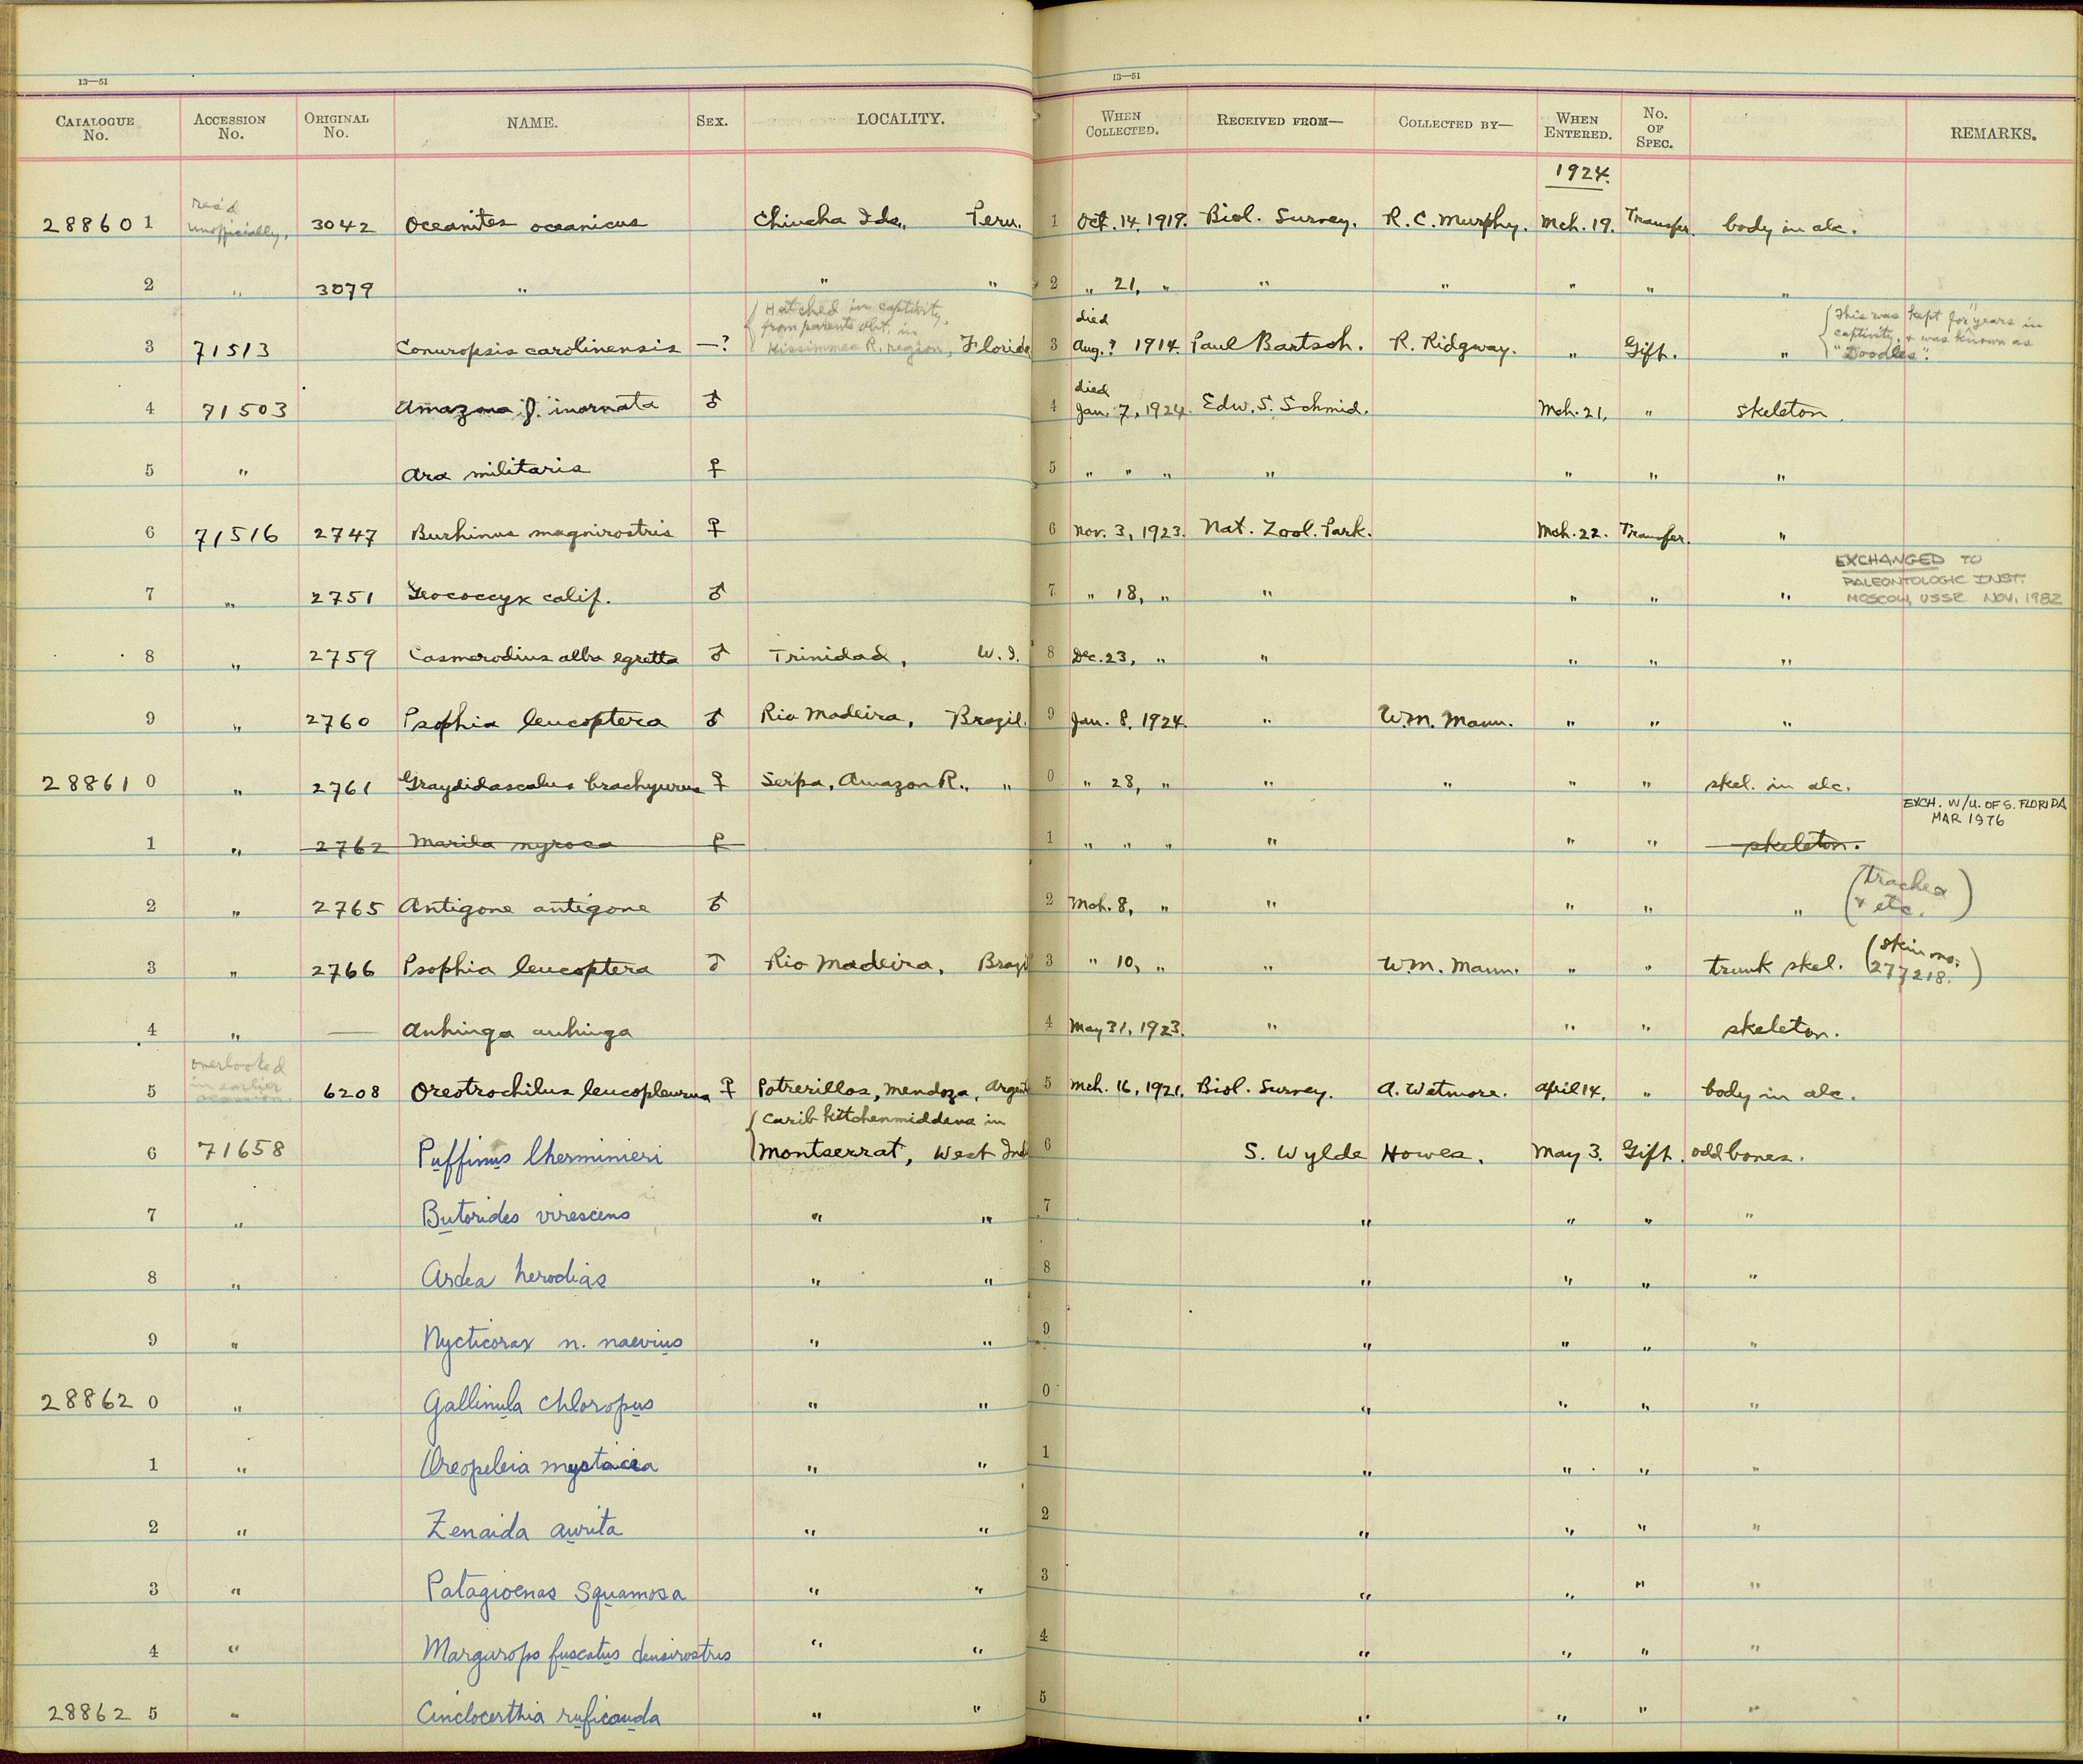 13—51 13—51
CATALOGUE No. ACCESSION No. ORIGINAL No. NAME. SEX. LOCALITY. WHEN COLLECTED. RECEIVED FROM— COLLECTED BY— WHEN ENTERED. No. OF SPEC. REMARKS.
1924.
288601 rec'd unofficially. 3042 Oceanites oceanicus Chincha Ids., Peru. 1 Oct. 14, 1919. Biol. Survey. R. C. Murphy. Mch. 19. Transfer. body in alc.
2 " 3079 " " " 2 " 21, " " " " " "
{ Hatched in captivity, from parents obt. in Kissimmee R. region,
3 71513 Conuropsis carolinensis —? Florida 3 died Aug.? 1914. Paul Bartsch. R. Ridgway. " Gift. " { This was kept for years in captivity, & was known as "Doodles".
4 71503 Amazona f. inornata ♂ 4 died Jan. 7, 1924. Edw. S. Schmid. Mch. 21, " skeleton.
5 " Ara militaris ♀ 5 " " " " " " "
6 71516 2747 Burhinus magnirostris ♀ 6 Nov. 3, 1923. Nat. Zool. Park. Mch. 22. Transfer. "
7 " 2751 Geococcyx calif. ♂ 7 " 18, " " " " " EXCHANGED TO PALEONTOLOGIC INST. MOSCOW, USSR NOV. 1982
8 " 2759 Casmerodius alba egretta ♂ Trinidad, W. I. 8 Dec. 23, " " " " "
9 " 2760 Psophia leucoptera ♂ Rio Madeira, Brazil. 9 Jan. 8, 1924. " W. M. Mann. " " "
288610 " 2761 Graydidascalus brachyurus ♀ Serpa, Amazon R., " 0 " 28, " " " " " skel. in alc.
1 " 2762 Marila nyroca ♀ 1 " " " " " " skeleton. EXCH. W/U. OF S. FLORIDA MAR 1976
2 " 2765 Antigone antigone ♂ 2 Mch. 8, " " " " " (trachea & etc.)
3 " 2766 Psophia leucoptera ♂ Rio Madeira, Brazil 3 " 10, " " W. M. Mann. " " trunk skel. (skin no. 277218.)
4 " — Anhinga anhinga 4 May 31, 1923. " " " skeleton.
5 overlooked in earlier accession. 6208 Oreotrochilus leucopleurus ♀ Potrerillos, Mendoza, Argent 5 Mch. 16, 1921. Biol. Survey. A. Wetmore. April 14. " body in alc.
6 71658 Puffinus lherminieri { Carib kitchenmiddens in Montserrat, West Ind 6 S. Wylde Howes. May 3. Gift. odd bones.
7 " Butorides virescens " " 7 " " " "
8 " Ardea herodias " " 8 " " " "
9 " Nycticorax n. naevius " " 9 " " " "
288620 " Gallinula chloropus " " 0 " " " "
1 " Oreopeleia mystacea " " 1 " " " "
2 " Zenaida aurita " " 2 " " " "
3 " Patagioenas squamosa " " 3 " " " "
4 " Margarops fuscatus densirostris " " 4 " " " "
288625 " Cinclocerthia ruficauda " " 5 " " " "